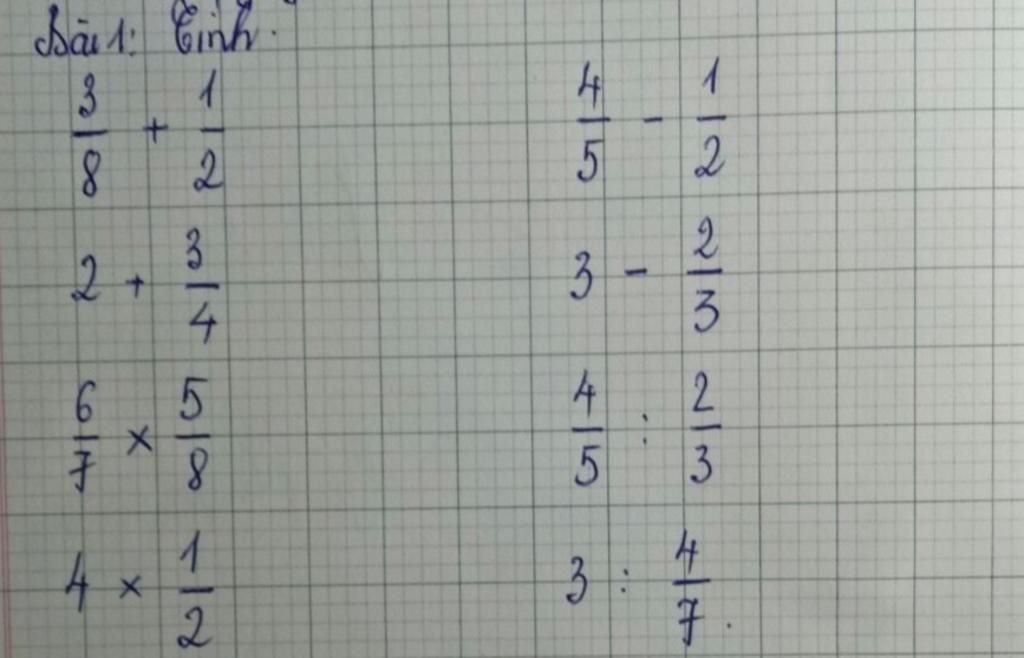 Bài 1: Tính.
3/8 + 1/2    4/5 - 1/2
2 + 3/4    3 - 2/3
6/7 × 5/8    4/5 : 2/3
4 × 1/2    3 : 4/7.